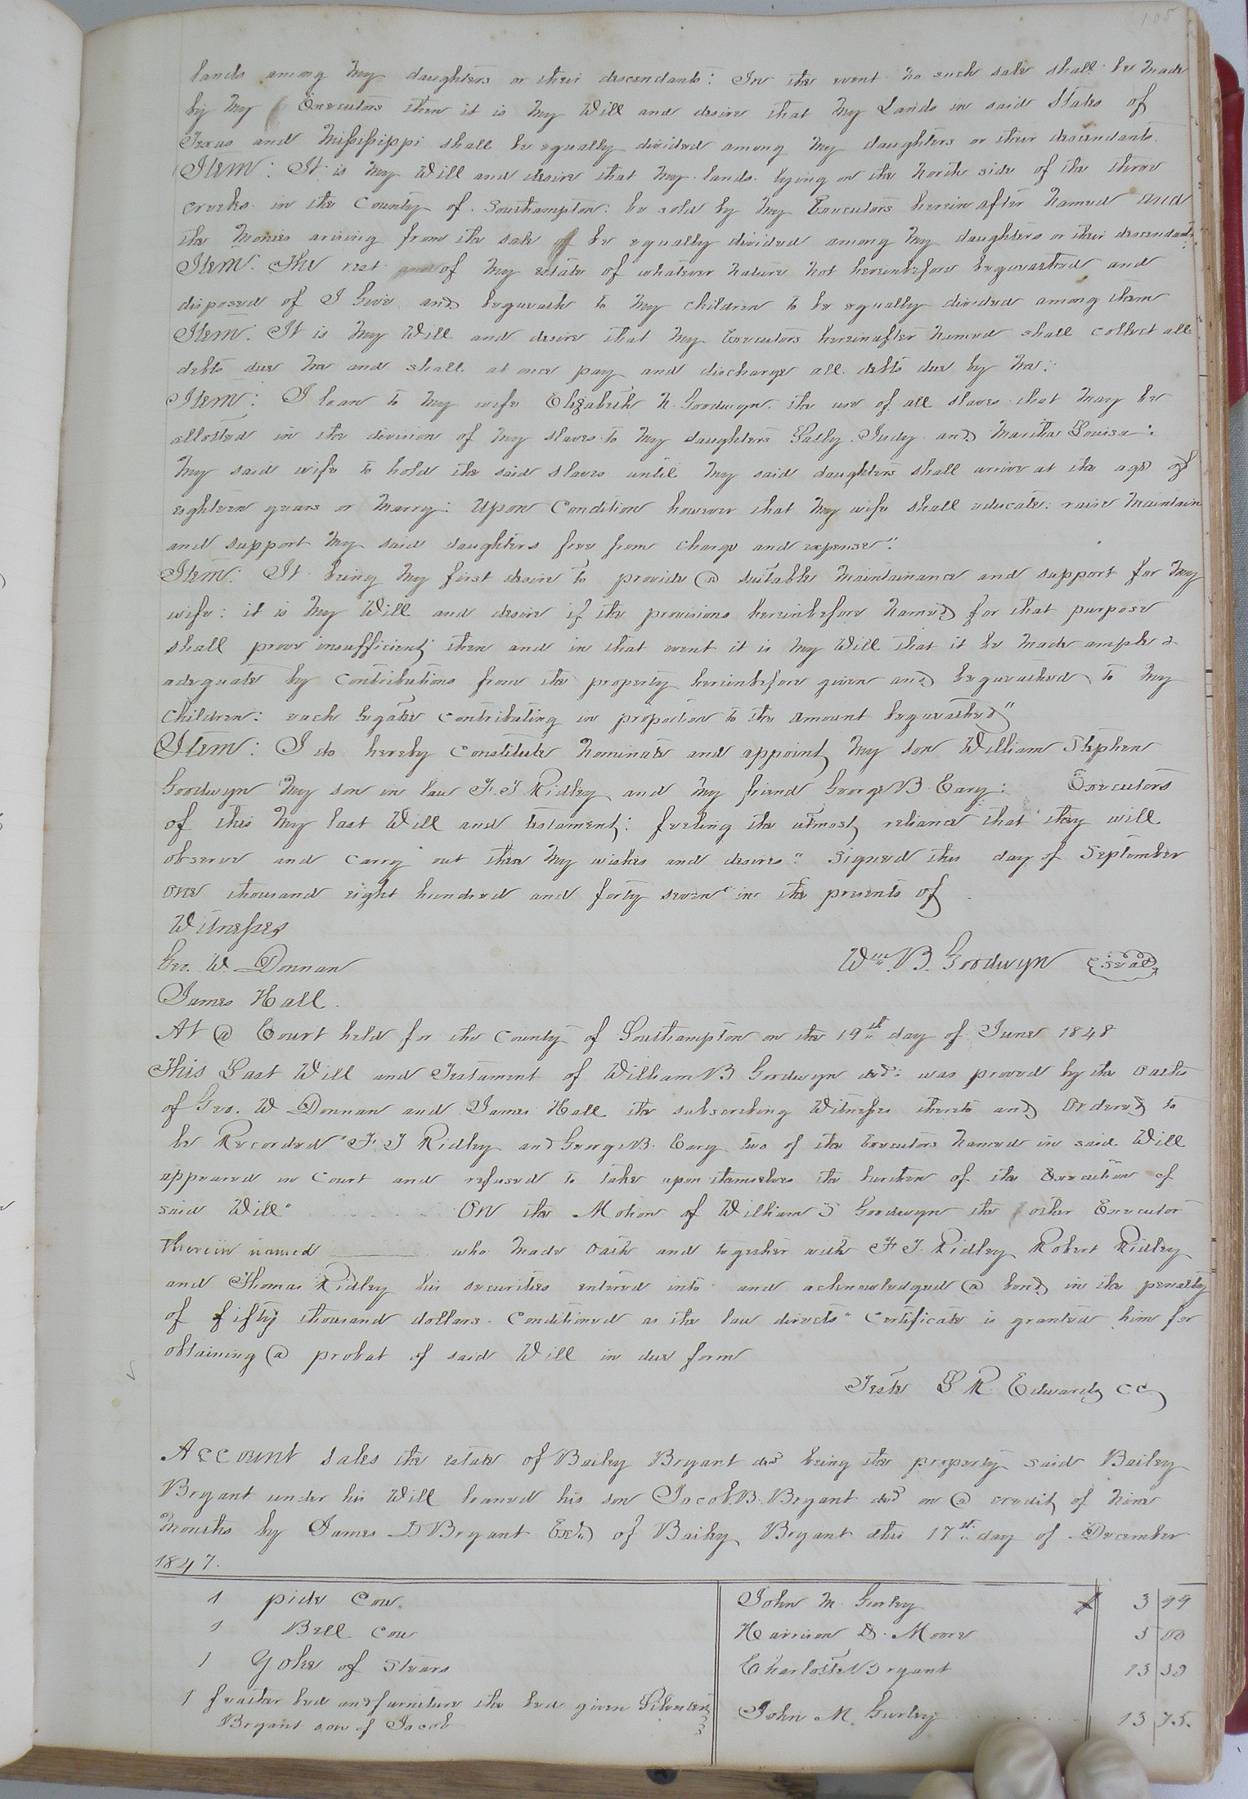 105
lands among my daughters or their descendants: In the event no such sale shall be made
by my Executors then it is my Will and desire that my Lands in said States of
Texas and Mississippi shall be equally divided among my daughters or their descendants.
Item: It is my Will and desire that my lands lying on the North side of the three
creeks in the County of Southampton: be sold by my Executors herein after named and
the monies arising from the sale of be equally divided among my daughters or their descendants:
Item. The rest of my estate of whatever nature not hereinbefore bequeathed and
disposed of I Give and bequeath to my children to be equally divided among them
Item. It is my Will and desire that my Executors hereinafter named shall collect all
debts due me and shall at once pay and discharge all debts due by me:
Item: I loan to my wife Elizabeth N. Goodwyn the use of all slaves that may be
allotted in the division of my slaves to my daughters Sally Judy and Martha Louisa:
My said wife to hold the said slaves until my said daughters shall arrive at the age of
eighteen years or marry: Upon Condition however that my wife shall educate: raise maintain
and support my said daughters free from charge and expense".
Item: It being my first desire to provide @ suitable maintainance and support for my
wife: it is my Will and desire if the provisions hereinbefore named for that purpose
shall prove insufficient; then and in that event it is my Will that it be made ample &
adequate by contributions from the property hereinbefore given and bequeathed to my
Children: each legatee contributing in proportion to the amount bequeathed"
Item: I do hereby Constitute nominate and appoint my son William Stephen
Goodwyn my son in law F. J Ridley and my friend George B. Cary: Executors
of this my last Will and testament: feeling the utmost reliance that they will
observe and carry out these my wishes and desires" Signed this day of September
one thousand eight hundred and forty seven in the presents of
Witnesses
Geo. W Donnan Wm. B. Goodwyn seal
James Hall.
At @ Court held for the County of Southampton on the 19th day of June 1848
This Last Will and Testament of William B Goodwyn decd: was proved by the oaths
of Geo. W Donnan and James Hall the subscribing Witnesses thereto and Ordered to
be Recorded" F. J Ridley and George B. Cary two of the Executors named in said Will
appeared in Court and refused to take upon themselves the burthen of the Execution of
said Will" On the Motion of William S Goodwyn the other Executor
Therein named who made oath and together with F J. Ridley Robert Ridley
and Thomas Ridley his securities entered into and acknowledged @ bond in the penalty
of fifty thousand dollars. Conditioned as the law directs" Certificate is granted him for
obtaining @ probat of said Will in due form
Teste L R Edwards CC
Account Sales the estate of Bailey Bryant decd being the property said Bailey
Bryant under his Will loaned his son Jacob. B. Bryant decd on @ credit of Nine
Months by James D Bryant Exr of Bailey Bryant this 17th day of December
1847.
1 pide Cow. John M. Gurley 3 99
1 Bell Cow Harrison D. Moore 5 00
1 Yoke of Stears Charlotte Bryant 13 50
1 feather bed and furniture the bed given
Bryant son of Jacob John M. Gurley 13 75.